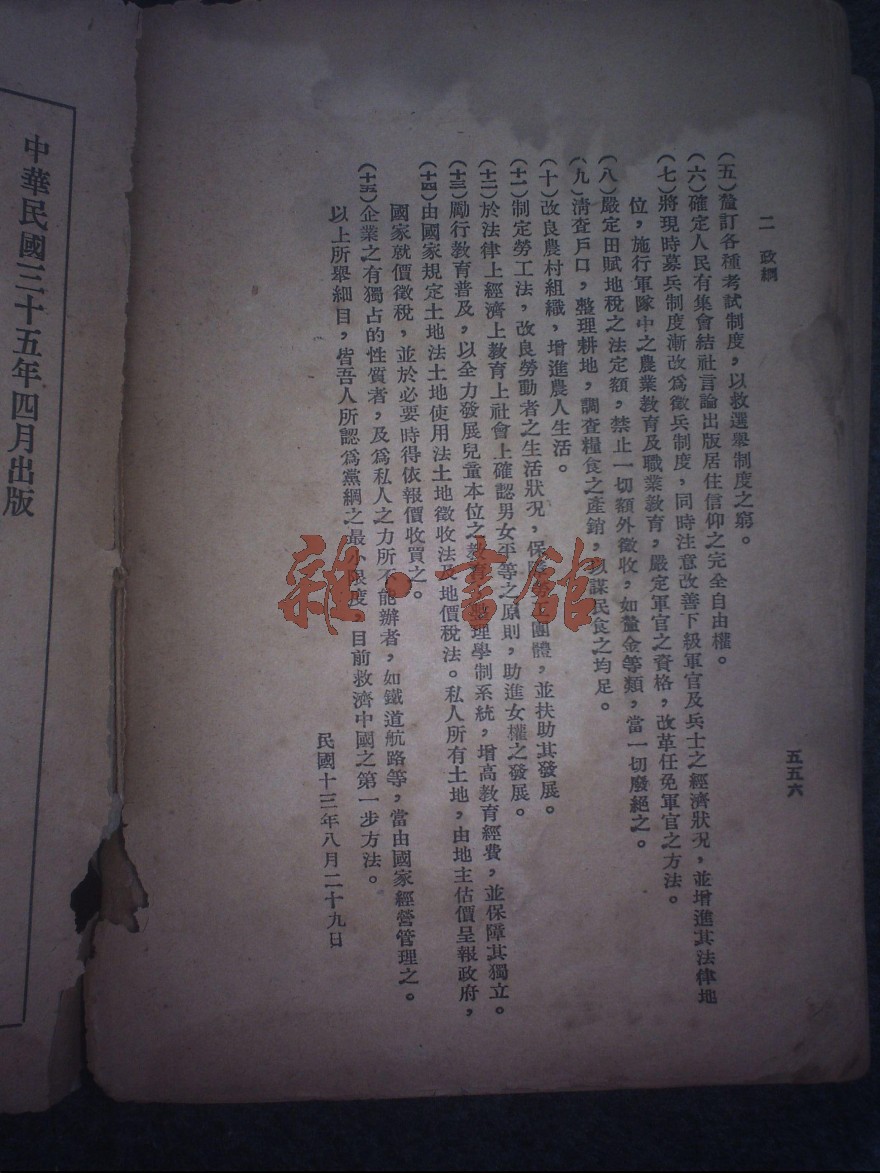 二　政綱
五五六
(五)釐訂各種考試制度，以救選舉制度之窮。
(六)確定人民有集會結社言論出版居住信仰之完全自由權。
(七)將現時募兵制度漸改爲徵兵制度，同時注意改善下級軍官及兵士之經濟狀况，並增進其法律地
位，施行軍隊中之農業教育及職業教育，嚴定軍官之資格，改革任免軍官之方法。
(八)嚴定田賦地稅之法定額，禁止一切額外徵收，如釐金等類，當一切廢絕之。
(九)淸查戶口，整理耕地，調查糧食之產銷，以謀民食之均足。
(十)改良農村組織，增進農人生活。
(十一)制定勞工法，改良勞動者之生活狀况，保障勞工團體，並扶助其發展。
(十二)於法律上經濟上教育上社會上確認男女平等之原則，助進女權之發展。
(十三)勵行教育普及，以全力發展兒童本位之教育，整理學制系統，增高教育經費，並保障其獨立。
(十四)由國家規定土地法土地使用法土地徵收法及地價稅法。私人所有土地，由地主估價呈報政府，
國家就價徵稅，並於必要時得依報價收買之。
(十五)企業之有獨占的性質者，及爲私人之力所不能辦者，如鐵道航路等，當由國家經營管理之。
以上所舉細目，皆吾人所認爲黨綱之最小限度，目前救濟中國之第一步方法。
民國十三年八月二十九日
中華民國三十五年四月出版
雜·書館